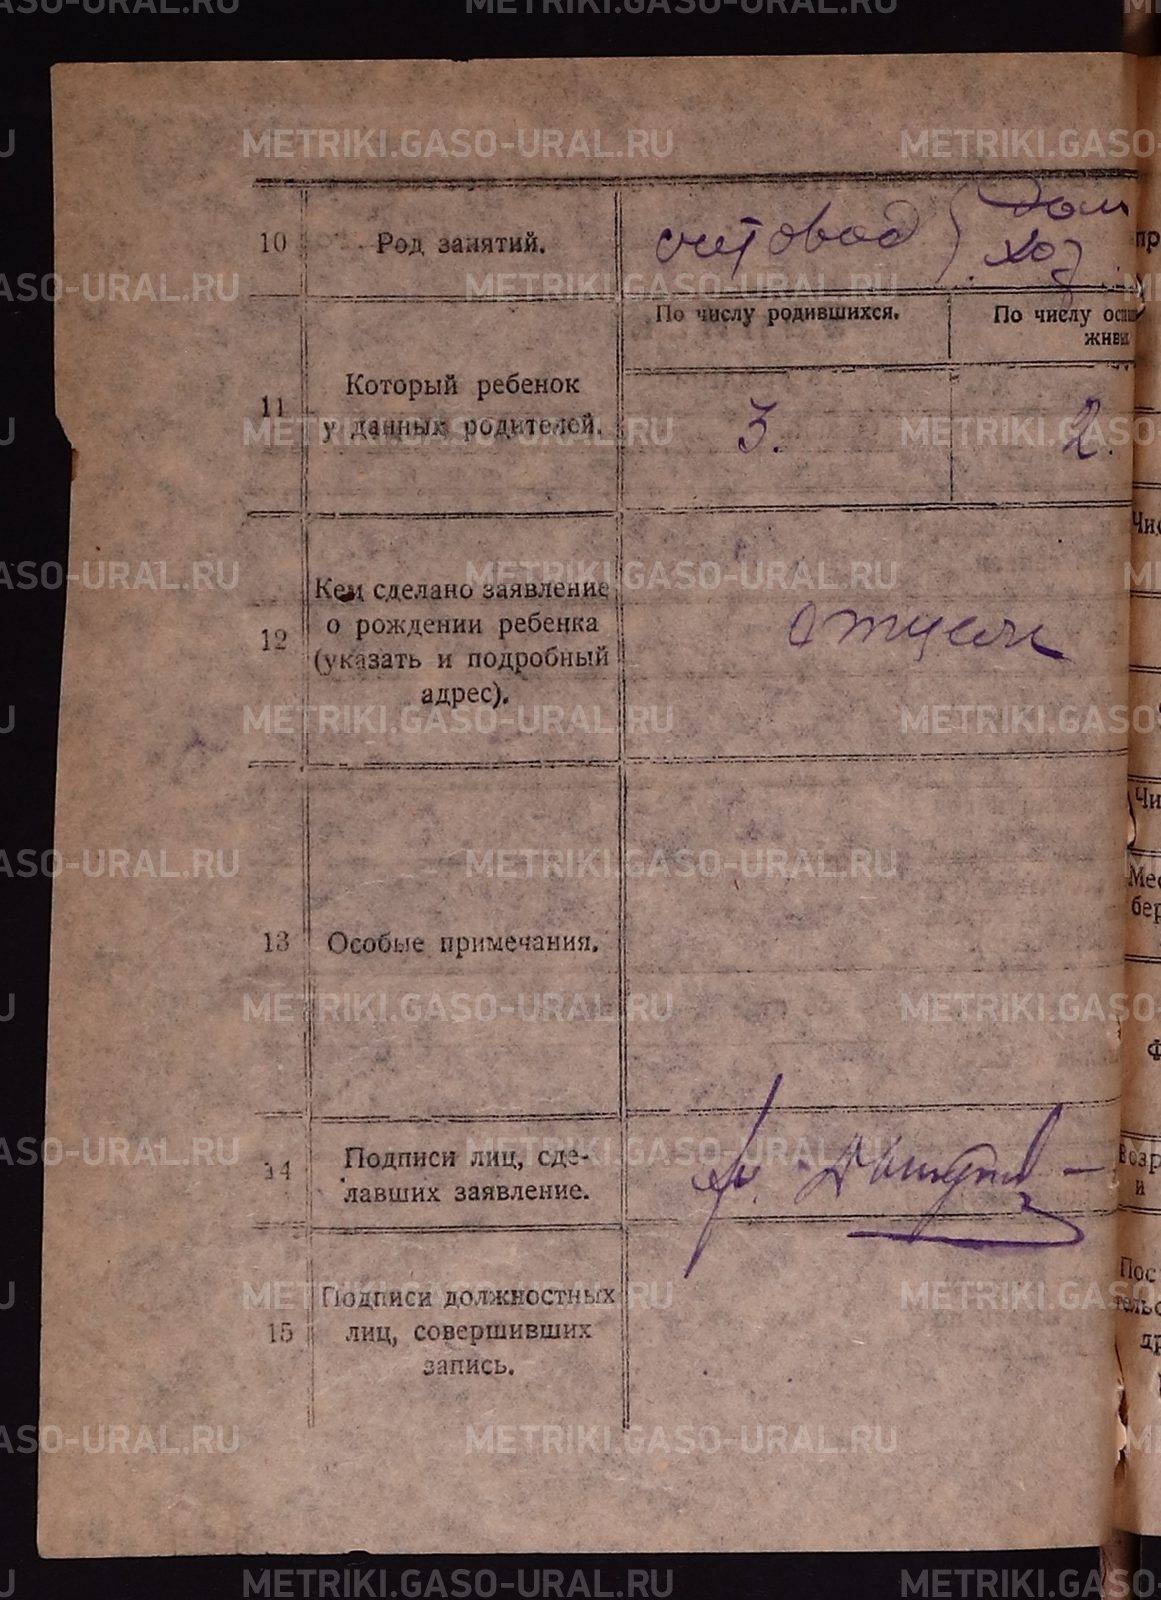 METRIKI.GASO-URAL.RU
10
Род занятий.
счетовод
Дом
хоз
11
Который ребенок
у данных родителей.
По числу родившихся.
По числу остав
живы
3.
2.
12
Кем сделано заявление
о рождении ребенка
(указать и подробный
адрес).
отцем
13
Особые примечания.
14
Подписи лиц, сде-
лавших заявление.
15
Подписи должностных
лиц, совершивших
запись.
пр
Чис
Чи
Мес
бер
Ф
Возр
и
Пос
тельс
др